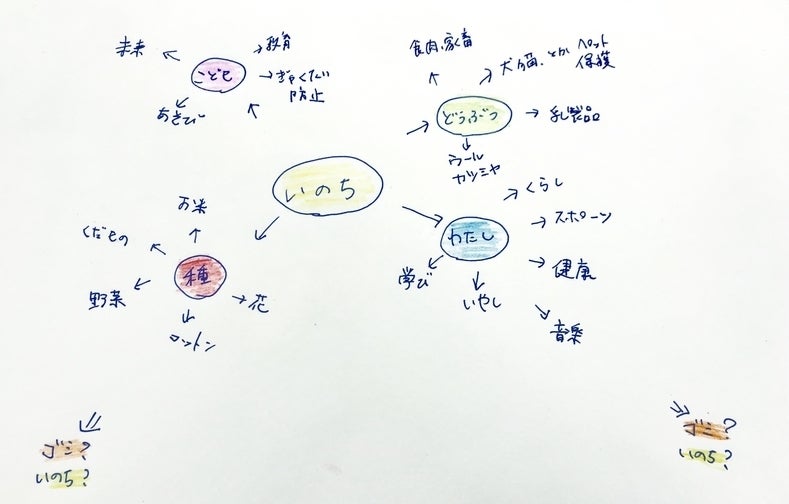 未来
こども
→教育
→ぎゃくたい
防止
あそび
食肉、家畜
犬、猫、とか ペット
保護
どうぶつ
→乳製品
ウール
カシミヤ
いのち
お米
くだもの
種
野菜
→花
コットン
わたし
→くらし
→スポーツ
→健康
学び
いやし
音楽
ゴミ?
いのち?
ゴミ?
いのち?